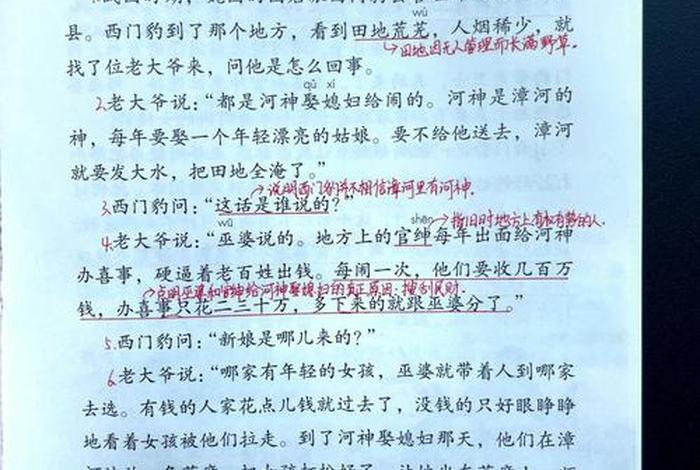 县。西门豹到了那个地方，看到田地荒芜，人烟稀少，就
wú
田地因无人管理而长满野草。
找了位老大爷来，问他是怎么回事。
qǔ xí
2.老大爷说：“都是河神娶媳妇给闹的。河神是漳河的
神，每年要娶一个年轻漂亮的姑娘。要不给他送去，漳河
就要发大水，把田地全淹了。”
说明西门豹并不相信漳河里有河神。
3.西门豹问：“这话是谁说的？”
指旧时地方上有权有势的人.
wū shēn
4.老大爷说：“巫婆说的。地方上的官绅每年出面给河神
办喜事，硬逼着老百姓出钱。每闹一次，他们要收几百万
点明巫婆和官绅给河神娶媳妇的真正原因:搜刮民财.
钱，办喜事只花二三十万，多下来的就跟巫婆分了。”
5.西门豹问：“新娘是哪儿来的？”
6.老大爷说：“哪家有年轻的女孩，巫婆就带着人到哪家
去选。有钱的人家花点儿钱就过去了，没钱的只好眼睁睁
地看着女孩被他们拉走。到了河神娶媳妇那天，他们在漳